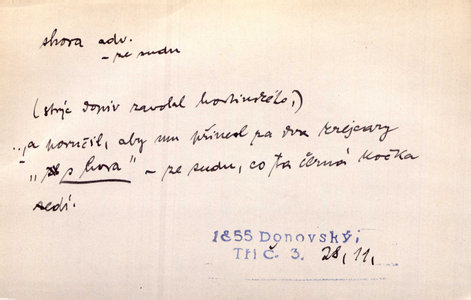 shora adv.
– ze sudu
(strýc Donív zavolal hostinského,)
...,a poručil, aby mu přinesl za dva krejcary
"s hora" – ze sudu, co ta černá kočka
sedí.
1855 Donovský,
Tři č. 3. 28, 11,